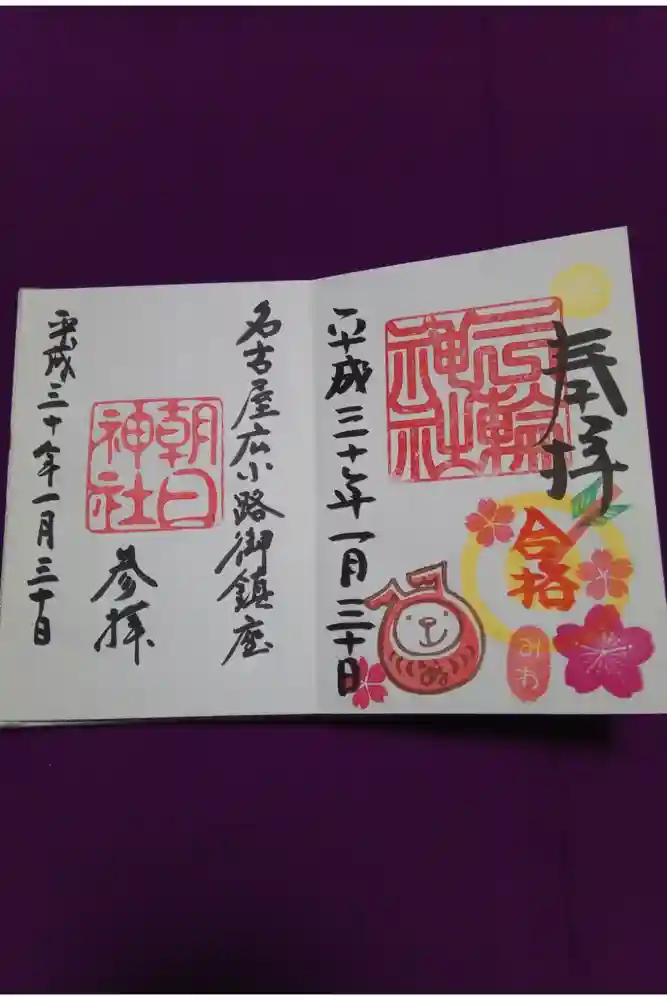 奉拝
三輪神社
合格
みわ
平成三十年一月三十日
名古屋広小路御鎮座
朝日神社
参拝
平成三十年一月三十日